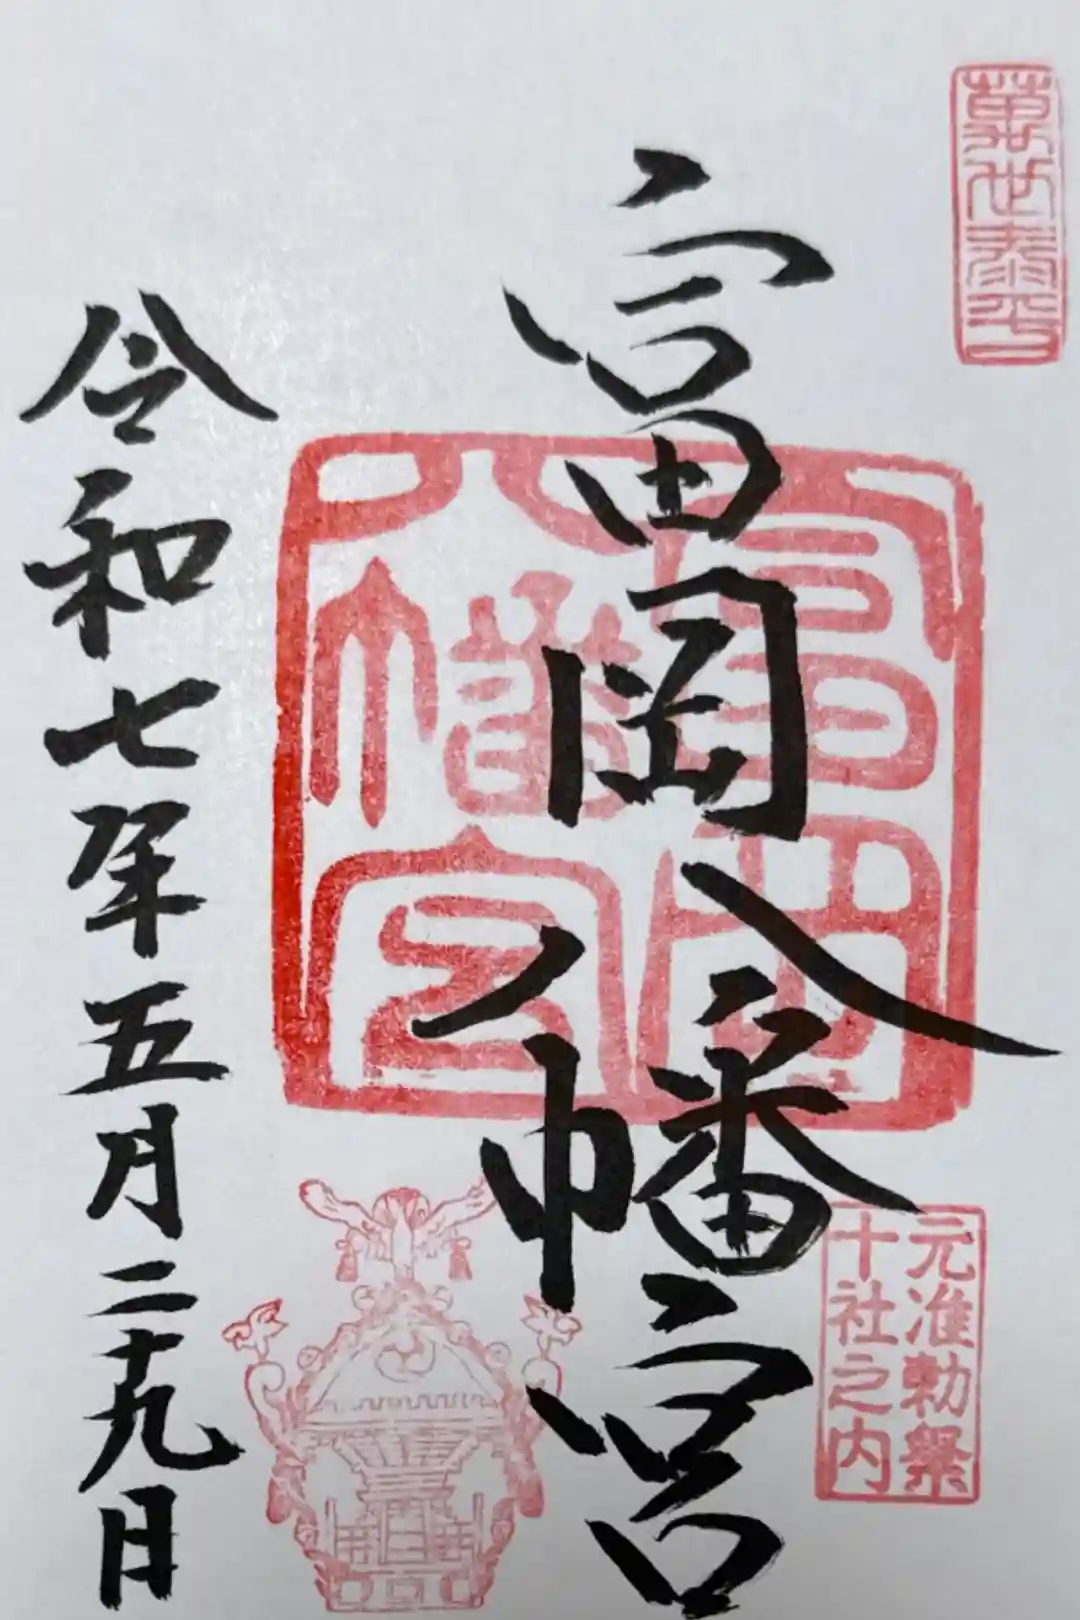 萬世泰平
富岡八幡宮
富岡八幡宮
元准勅祭
十社之内
令和七年五月二十九日